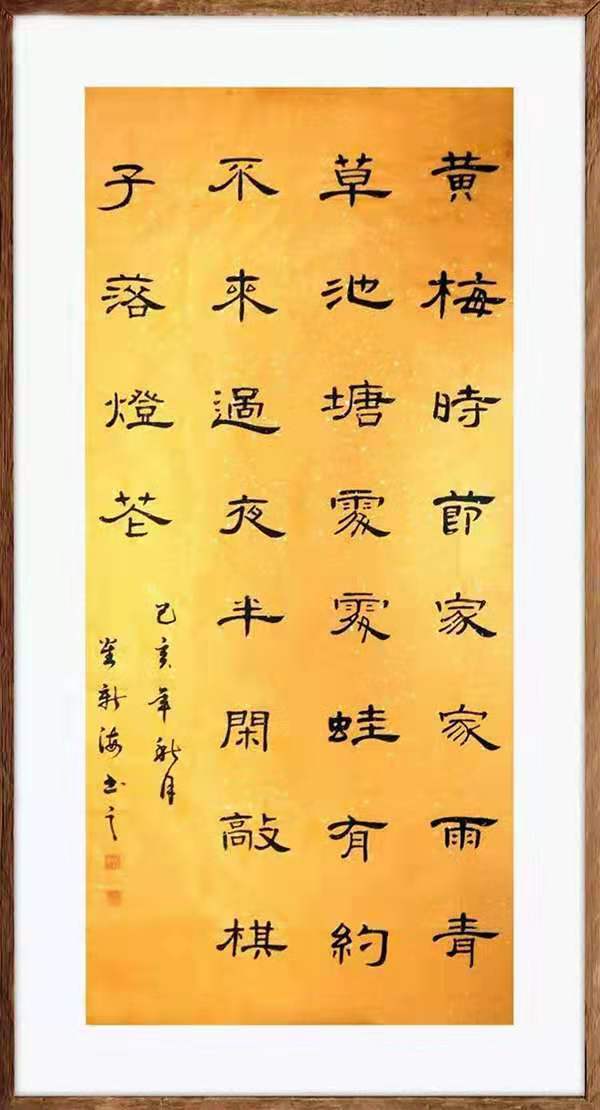 黄梅時節家家雨青
草池塘處處蛙有約
不來過夜半閑敲棋
子落燈花
己亥年秋月
崔新海書之